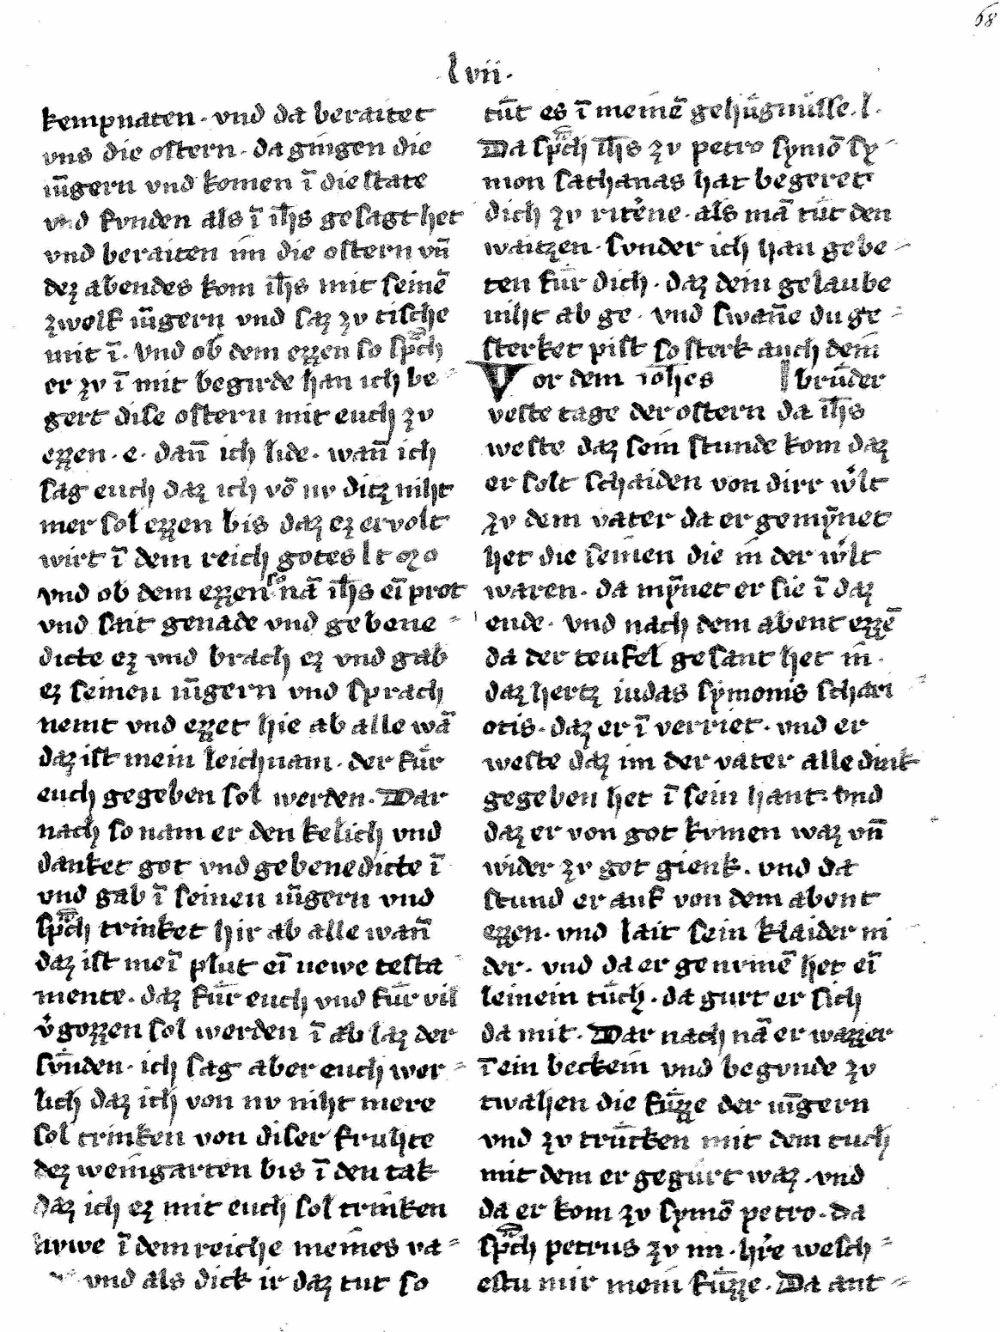 68
lvii.
kempnaten. vnd da beraitet
vns die ostern. da gingen die
iu̅gern vnd komen i̅ die state
vnd funden als i̅ ih̅s gesagt het
vnd beraiten im die ostern vn̅
dez abendes kom ih̅s mit seine̅
zwolf iu̅gern vnd saz zv tische
mit i̅. Vnd ob dem ezzen so sp̅ch
er zv i̅ mit begirde han ich be⸗
gert dise ostern mit euch zv
ezzen. e. dan̅ ich lide. wan̅ ich
sag euch daz ich vo̅ nv ditz niht
mer sol ezzen bis daz ez ervolt
wirt i̅ dem reich gotes
vnd ob dem ezzen so na̅ ih̅s ei̅ prot
vnd sait genade vnd gebene⸗
dicte ez vnd brach ez vnd gab
ez seinen iu̅gern vnd sprach
nemt vnd ezzet hie ab alle wa̅
daz ist mein leichnam. der fuͤr
euch gegeben sol werden. Dar
nach so nam er den kelich vnd
danket got vnd gebenedicte i̅
vnd gab i̅ seinen iu̅gern vnd
sp̅ch trinket hir ab alle wan̅
daz ist mei̅ plut ei̅ newe testa⸗
mente. daz fuͤr euch vnd fuͤr vil
v᾽gozzen sol werden i̅ ab laz der
suͤnden. ich sag aber euch wer⸗
lich daz ich von nv niht mere
sol trinken von diser fruhte
dez weingarten bis i̅ den tak
daz ich ez mit euch sol trinken
nvwe i̅ dem reiche meines va⸗
vnd als dick ir daz tut so
tuͤt es i̅ meine̅ gehuͤgnuͤsse. l.
Da sp̅ch ih̅s zv petro symo̅ sy⸗
mon sathanas hat begeret
dich zv rite᾽ne. als ma̅ tuͤt den
waitzen. sunder ich han gebe⸗
ten fuͤr dich. daz dein gelaube
niht ab ge. vnd swan̅e du ge⸗
sterket pist so sterk auch dein
Vor dem ioh̅es bruͤder
veste tage der ostern da ih̅s
weste daz sein stunde kom daz
er solt schaiden von dirr w᾽lt
zv dem vater da er gemy̅net
het die seinen die in der w᾽lt
waren. da my̅net er sie i̅ daz
ende. vnd nach dem abent ezze̅
da der teufel gesant het in.
daz hertz iudas symonis schari⸗
otis. daz er i̅ verriet. vnd er
weste daz im der vater alle dink
gegeben het i̅ sein hant. vnd
daz er von got kvmen waz vn̅
wider zv got gienk. vnd da
stund er auf von dem abent
ezzen. vnd lait sein klaider ni
der. vnd da er genvme̅ het ei̅
leinein tuͤch. da gurt er sich
da mit. Dar nach na̅ er wazzer
i̅ ein beckein vnd begvnde zv
twahen die fuͤzze der iu̅gern
vnd zv truͤcken mit dem tuch
mit dem er geguͤrt waz. vnd
da er kom zv symo̅ petro. da
sp̅ch petrus zv im. h᾽re wesch⸗
estu mir mein fuͤzze. Da ant⸗